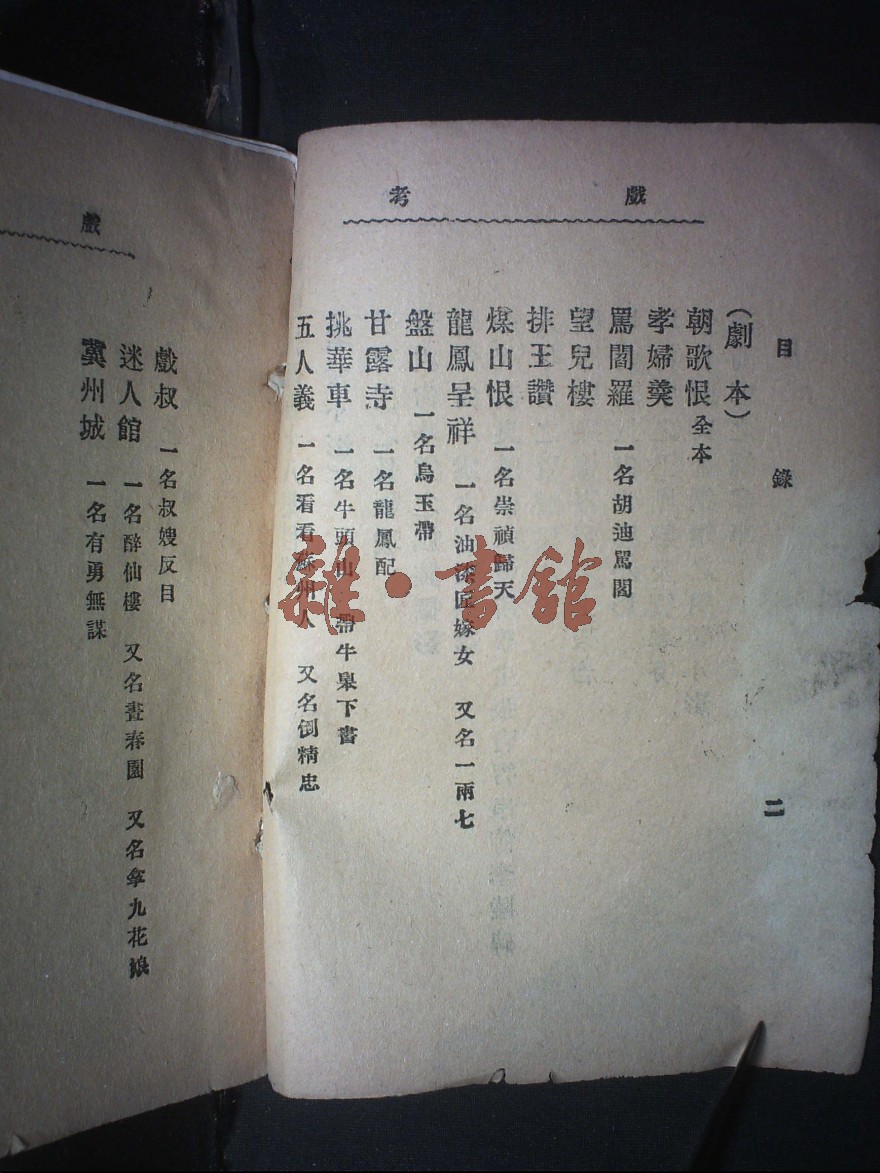 戲考
目錄 二
(劇本)
朝歌恨 全本
孝婦羹
罵閻羅 一名胡迪罵閻
望兒樓
排王讚
煤山恨 一名崇禎歸天
龍鳳呈祥 一名油漆匠嫁女 又名一兩七
盤山 一名烏玉帶
甘露寺 一名龍鳳配
挑華車 一名牛頭山 帶牛臯下書
五人義 一名看看蘇州人 又名倒精忠
戲
戲叔 一名叔嫂反目
迷人館 一名醉仙樓 又名畫春園 又名拿九花娘
冀州城 一名有勇無謀
雜·書館